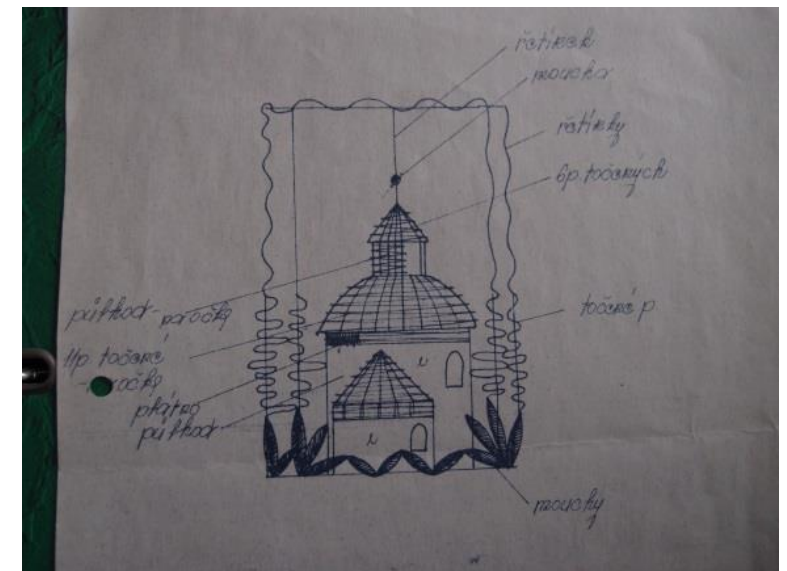 řetízek
moucha
řetízky
6p. točených
půlhod-
točené p
11p. točené
plátno
půlhod
mouchy